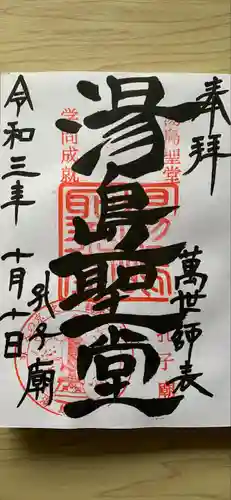 奉拝
萬世師表
湯島聖堂
湯島聖堂
学問成就
孔子廟
孔子廟
令和三年
十月十日